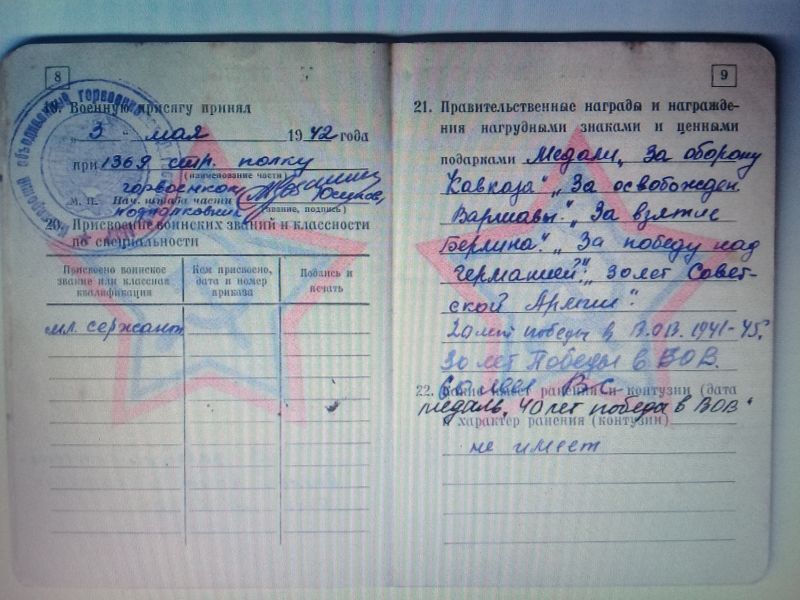 8
19. Военную присягу принял
„ 3 " мая 1942 года
при 1369 стр. полку
(наименование части)
горвоенком
М. П. Нач. штаба части Юсупов
подполковник (звание, подпись)
20. Присвоение воинских званий и классности
по специальности
Присвоено воинское
звание или классная
квалификация
Кем присвоено,
дата и номер
приказа
Подпись и
печать
мл. сержант
9
21. Правительственные награды и награжде-
ния нагрудными знаками и ценными
подарками Медали „За оборону
Кавказа" „За освобожден.
Варшавы." „За взятие
Берлина." „За победу над
Германией": „30 лет Совет-
ской Армии".
20 лет победы в В.О.В. 1941-45г.
30 лет Победы в ВОВ.
60 лет ВС
22. Какие имеет ранения и контузии (дата
медаль „40 лет победа в ВОВ"
и характер ранения (контузии)
не имеет